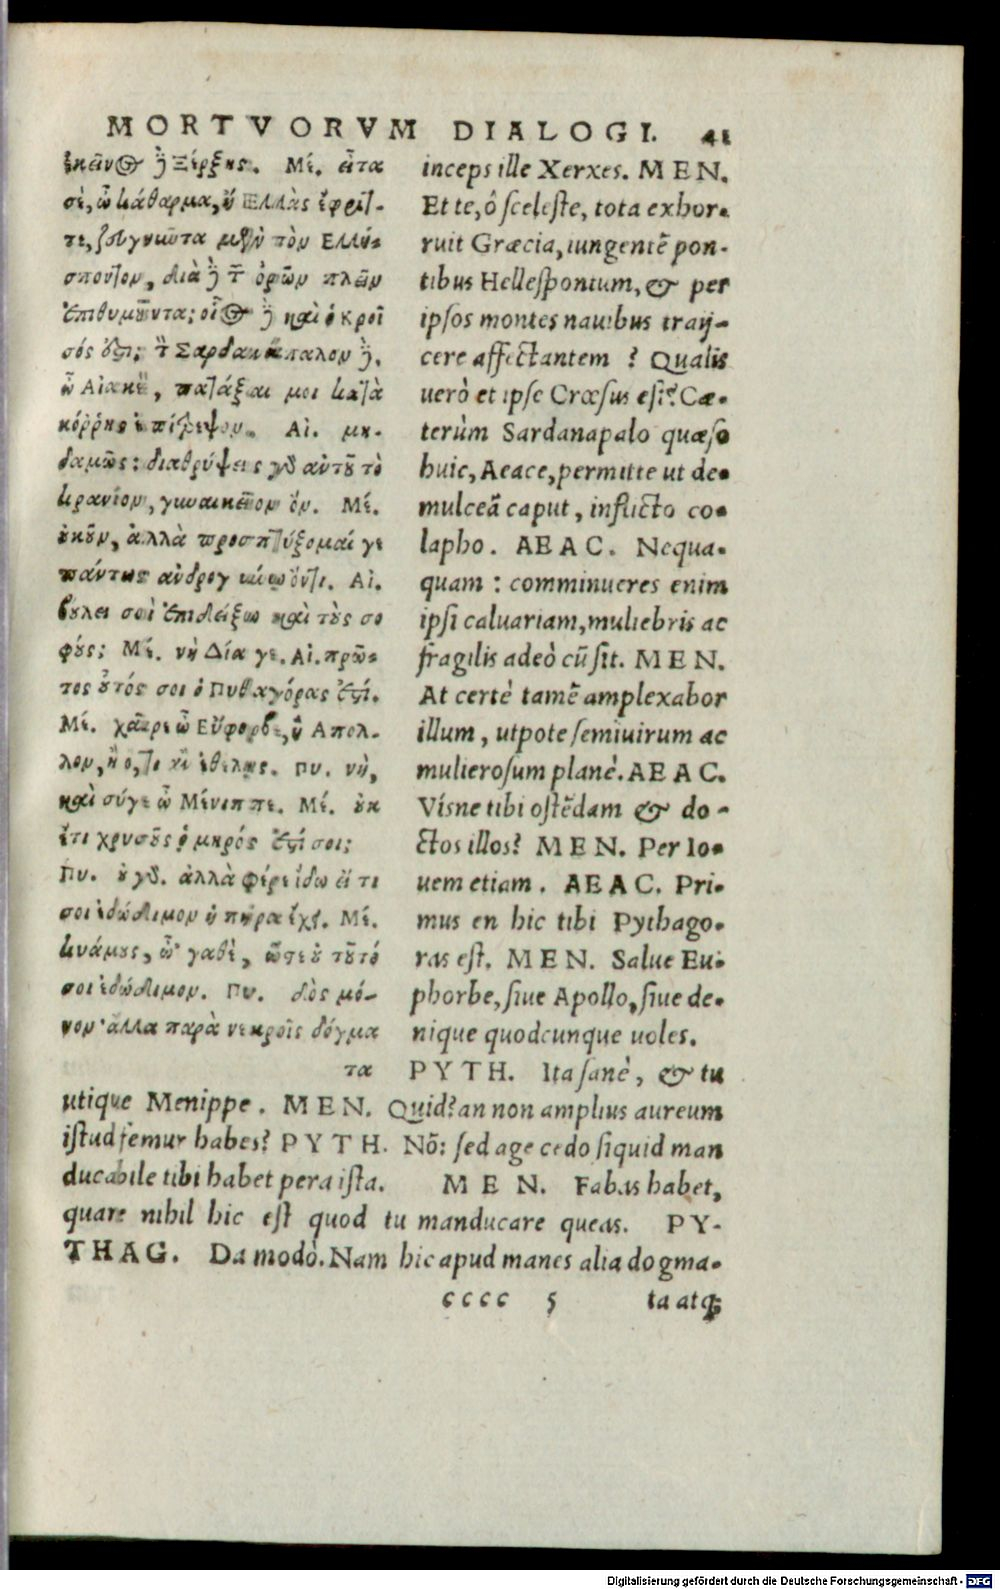 MORTVORVM DIALOGI. 41
ἐκεῖνος δὲ Ξέρξης. Μέ. εἶτα
σὲ, ὦ κάθαρμα, ἡ Ἑλλὰς ἔφριτ-
τε, ζευγνῶντα μὲν τὸν Ἑλλή-
σποντον, διὰ δὲ τ ὀρῶν πλεῖν
ἐπιθυμοῦντα; οἷος δὲ καὶ ὁ Κροῖ
σός ἐστι; τ Σαρδανάπαλον δὲ,
ὦ Αἰακὲ, πατάξαι μοι κατὰ
κόῤῥης ἐπίτρεψον. Αἰ. μη-
δαμῶς: διαθρύψεις γὰρ αὐτοῦ τὸ
κρανίον, γυναικεῖον ὄν. Μέ.
οὐκοῦν, ἀλλὰ προσπτύξομαί γε
πάντως ἀνδρογύνῳ ὄντι. Αἰ.
βούλει σοὶ ἐπιδείξω καὶ τοὺς σο
φούς; Μέ. νὴ Δία γε. Αἰ. πρῶ-
τος οὗτός σοι ὁ Πυθαγόρας ἐστί.
Μέ. χαῖρε ὦ Εὔφορβε, ἢ Ἀπολ-
λον, ἢ ὅ, τι ἐθέλῃς. Πυ. νὴ,
καὶ σύγε ὦ Μένιππε. Μέ. οὐκ
ἔτι χρυσοῦς ὁ μηρός ἐστί σοι;
Πυ. οὐ γὰρ. ἀλλὰ φέρε ἴδω εἴ τι
σοι ἐδώδιμον ἡ πήρα ἔχει. Μέ.
κυάμους, ὦ 'γαθὲ, ὥστε οὐ τοῦτό
σοι ἐδώδιμον. Πυ. δὸς μό-
νον· ἄλλα παρὰ νεκροῖς δόγμα
τα
inceps ille Xerxes. MEN.
Et te, ô sceleste, tota exhor-
ruit Græcia, iungentẽ pon-
tibus Hellespontum, & per
ipsos montes nauibus traij-
cere affectantem ? Qualis
uerò et ipse Crœsus est? Cæ-
terùm Sardanapalo quæso
huic, Aeace, permitte ut de-
mulceã caput, inflicto co-
lapho. AEAC. Nequa-
quam : comminueres enim
ipsi caluariam, muliebris ac
fragilis adeò cũ sit. MEN.
At certè tamẽ amplexabor
illum, utpote semiuirum ac
mulierosum planè. AEAC.
Visne tibi ostẽdam & do-
ctos illos? MEN. Per Io-
uem etiam. AEAC. Pri-
mus en hic tibi Pythago-
ras est. MEN. Salue Eu-
phorbe, siue Apollo, siue de-
nique quodcunque uoles.
PYTH. Ita sanè, & tu
utique Menippe. MEN. Quid? an non amplius aureum
istud femur habes? PYTH. Nõ: sed age cedo siquid man
ducabile tibi habet pera ista. MEN. Fabas habet,
quare nihil hic est quod tu manducare queas. PY-
THAG. Da modò. Nam hic apud manes alia dogma-
cccc 5 ta atq;
Digitalisierung gefördert durch die Deutsche Forschungsgemeinschaft - DFG